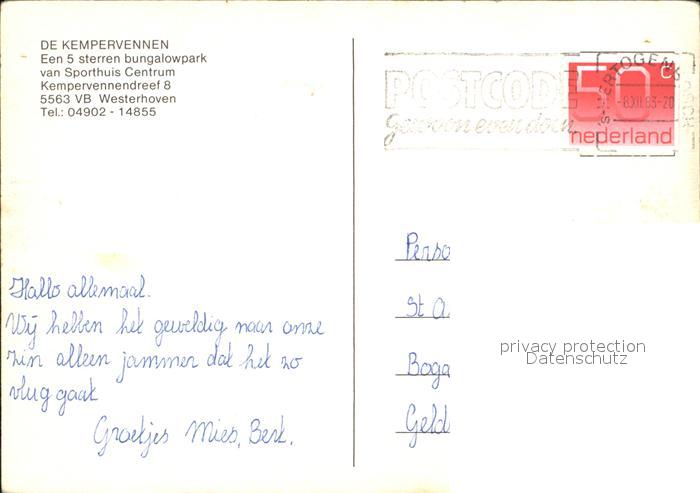 DE KEMPERVENNEN
Een 5 sterren bungalowpark
van Sporthuis Centrum
Kempervennendreef 8
5563 VB Westerhoven
Tel.: 04902 - 14855
POSTCODE
gewoon even doen
'S-HERTOGENBOSCH
-8.XII.83-20
50 c
nederland
Hallo allemaal.
Wij hebben het geweldig naar onze
zin alleen jammer dat het zo
vlug gaat
Groetjes Mies, Bert.
Perso
St A
Boga
Geld
privacy protection
Datenschutz